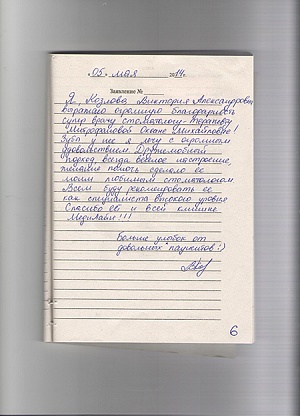 «05» мая 2014г.
Заявление №
Я, Козлова Виктория Александровна
выражаю огромную благодарность
супер врачу стоматологу-терапевту
Оксане Михайловне!
Зубы у нее я лечу с огромным
удовольствием. Дружелюбный
подход, всегда веселое настроение,
помочь сделало ее
моим любимым стоматологом
Всем буду рекомендовать ее
как специалиста высокого уровня
Спасибо ей и всей клинике
МедиЛайн!!!
Больше улыбок от
довольных "пациентов":)
6